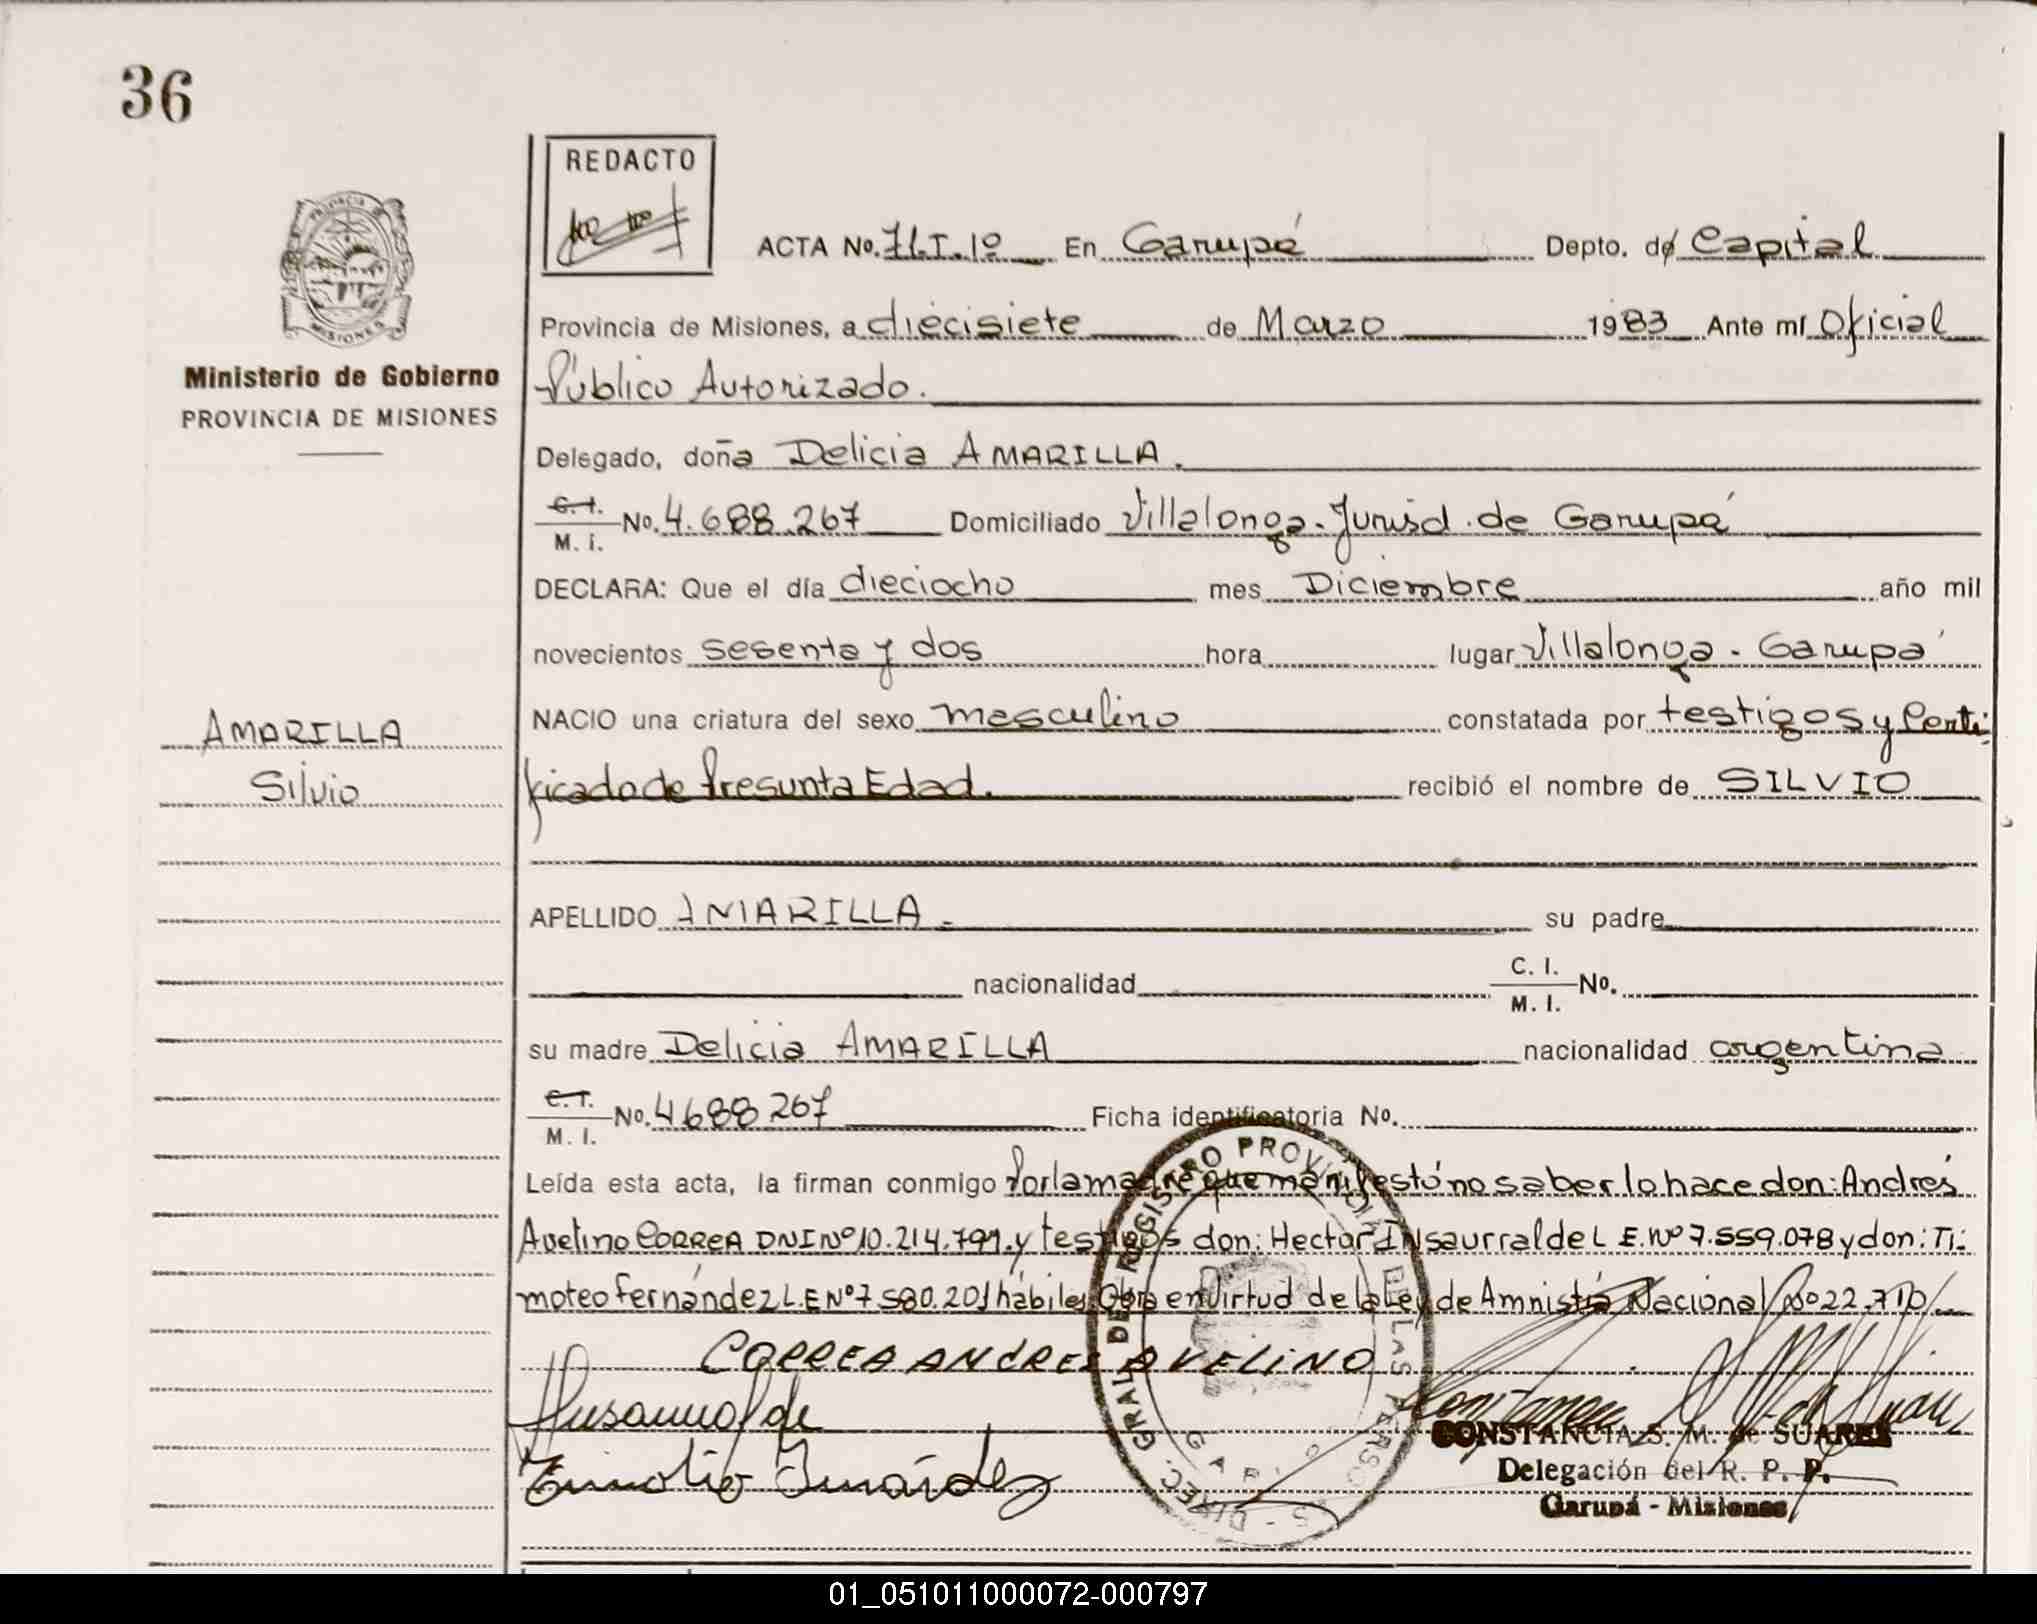 36
REDACTO
ACTA No. 71.T.1º En Garupá Depto. de Capital
Provincia de Misiones, a diecisiete de Marzo 1983 Ante mí Oficial
Público Autorizado.
Ministerio de Gobierno
PROVINCIA DE MISIONES
Delegado, doña Delicia AMARILLA.
C. I.
M. I. No. 4.688.267 Domiciliado Villalonga. Jurisd. de Garupá
DECLARA: Que el día dieciocho mes Diciembre año mil
novecientos sesenta y dos hora lugar Villalonga - Garupá
NACIO una criatura del sexo masculino constatada por testigos y Certi-
ficado de Presunta Edad. recibió el nombre de SILVIO
AMARILLA
Silvio
APELLIDO AMARILLA - su padre
nacionalidad C. I.
M. I. No.
su madre Delicia AMARILLA nacionalidad argentina
C. I.
M. I. No. 4688267 Ficha identificatoria No.
Leída esta acta, la firman conmigo Por la madre que manifestó no saber lo hace don: Andrés
Avelino CORREA DNI Nº 10.214.791. y testigos don: Hector Insaurralde L E. Nº 7.559.078 y don: Ti-
moteo Fernández L.E Nº 7.580.201 hábiles Obra en Virtud de la Ley de Amnistía Nacional Nº 22.710
CORREA ANDRES AVELINO
HInsaurralde
Timoteo Fernández
DIREC. GRAL DE REGISTRO PROVINCIAL DE LAS PERSONAS
CONSTANCIA S. M. de SUARES
Delegación del R. P. P.
Garupá - Misiones
01_051011000072-000797